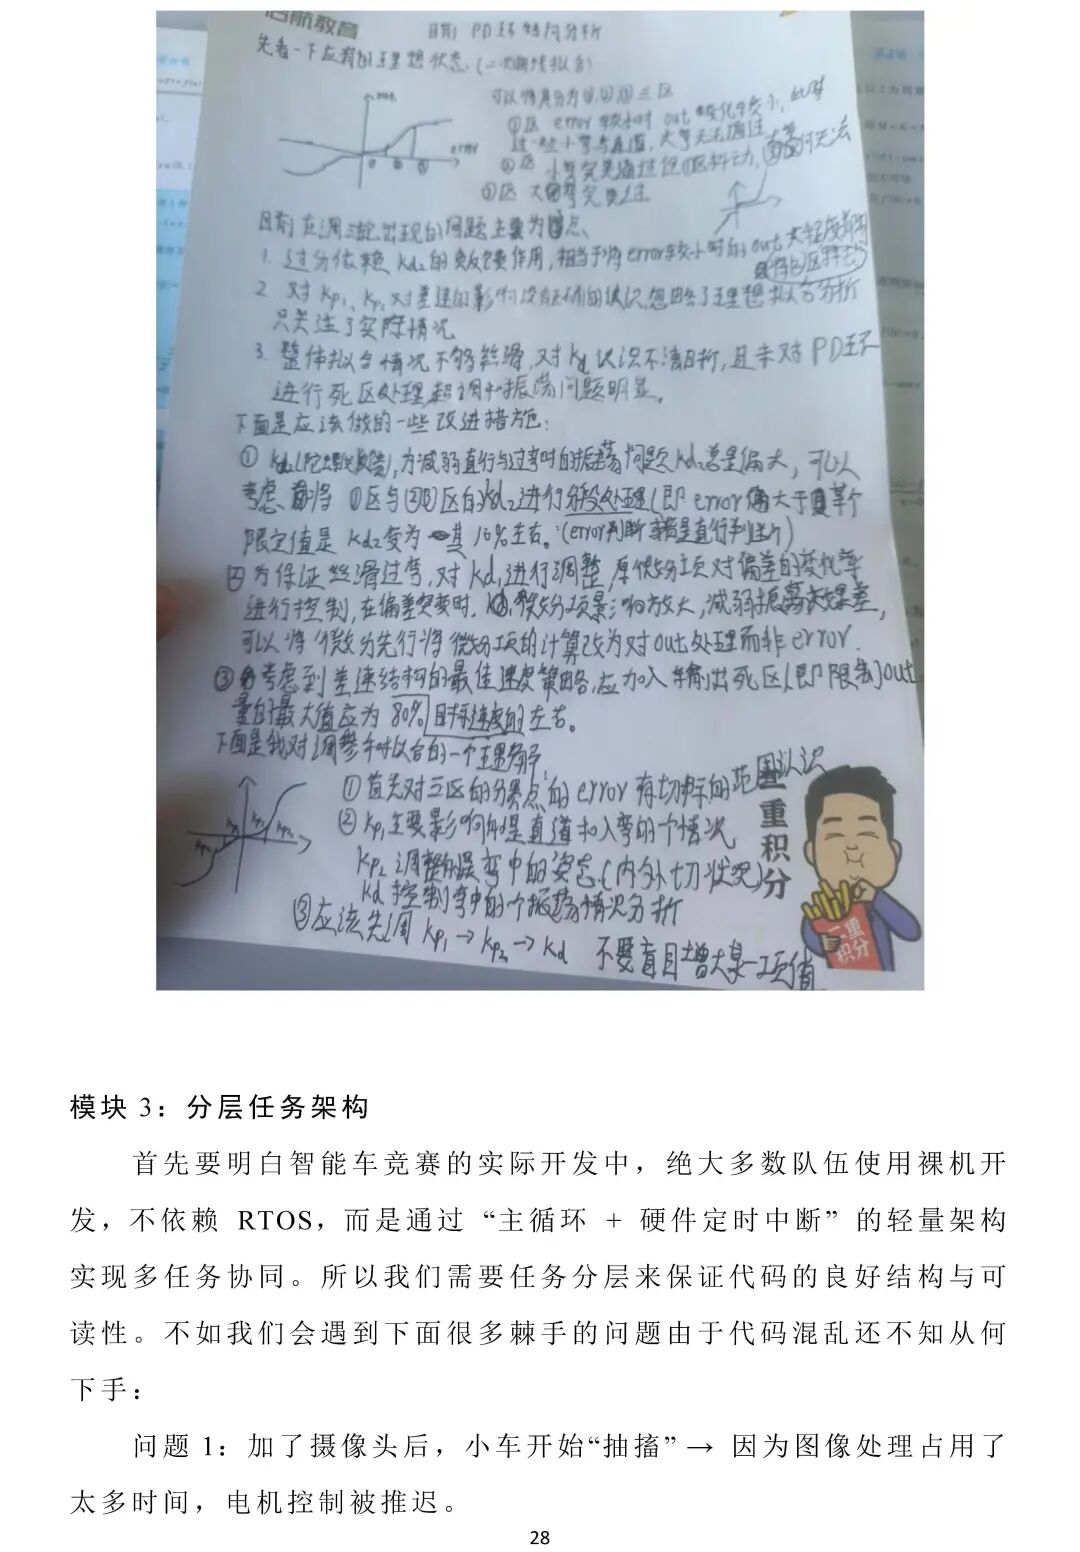 启航教育
目前 PD环转向分析
先看一下应有的理想状态.(二次曲线拟合)
out
error
① ② ③
可以将其分为①,②,③三区
①区 error较小时 out 变化率较小, 此时
过一些小弯与直道, 大弯无法通过
②区 小弯完美通过但①区抖动, 大弯仍无法
③区 大弯完美过
目前在调试出现的问题主要为3点、
1. 过分依赖 kd₂的负反馈作用, 相当于将error较小时的out大程度抑制
(将①区抖动)
2. 对 Kp₁, Kp₂对差速的影响没有正确的认识, 忽略了理想拟合分析
只关注了实际情况
3. 整体拟合情况不够丝滑, 对 kd 认识不清晰, 且未对 PD环
进行死区处理, 超调和振荡问题明显。
下面是应该做的一些改进措施:
① kd₂(陀螺仪反馈), 为减弱直行与过弯时的振荡问题 kd₂总是偏大, 可以
考虑 将 ①区与②③区的kd₂进行分段处理(即 error 大于某个
限定值是 kd₂变为 其 10%左右。(error判断 直行判断)
② 为保证丝滑过弯, 对 kd₁进行调整, 原微分项对偏差的变化率
进行控制, 在偏差突变时. 微分项影响放大, 减弱振荡效果差,
可以将微分先行将微分项的计算改为对out处理而非error.
③ 考虑到差速结构的最佳速度策略, 应加入输出死区(即限制)out
量的最大值应为 80% 目标速度的左右。
下面是我对调参与拟合的一个理解
kp₂ kp₁ kp₁ kp₂
① 首先对三区的分界点的error有切实的范围认识
② Kp₁主要影响的是直道和入弯的个情况
Kp₂调整的是弯中的姿态.(内外切状况)
Kd 控制弯中的个振荡情况分析
③ 应该先调 Kp₁→Kp₂→Kd 不要盲目增大某一项值
二重积分
二重积分
模块 3：分层任务架构
首先要明白智能车竞赛的实际开发中，绝大多数队伍使用裸机开
发，不依赖 RTOS，而是通过 “主循环 + 硬件定时中断” 的轻量架构
实现多任务协同。所以我们需要任务分层来保证代码的良好结构与可
读性。不如我们会遇到下面很多棘手的问题由于代码混乱还不知从何
下手：
问题 1：加了摄像头后，小车开始“抽搐” → 因为图像处理占用了
太多时间，电机控制被推迟。
28